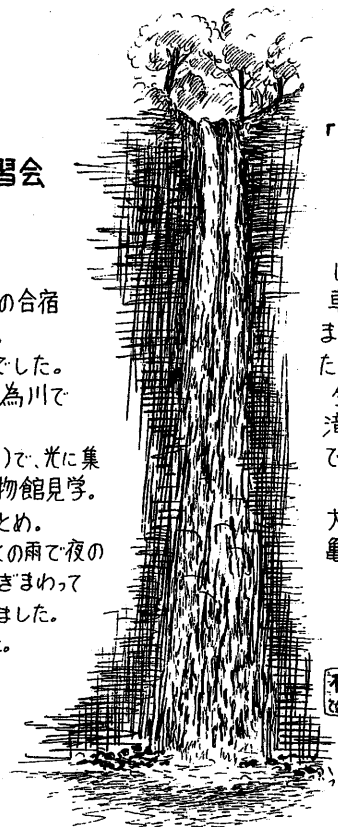 習会
の合宿
でした。
為川で
)で、光に集
物館見学。
とめ。
の雨で夜の
ぎまわって
ました。
。
「
し
車
ま
た
滝
で
亀